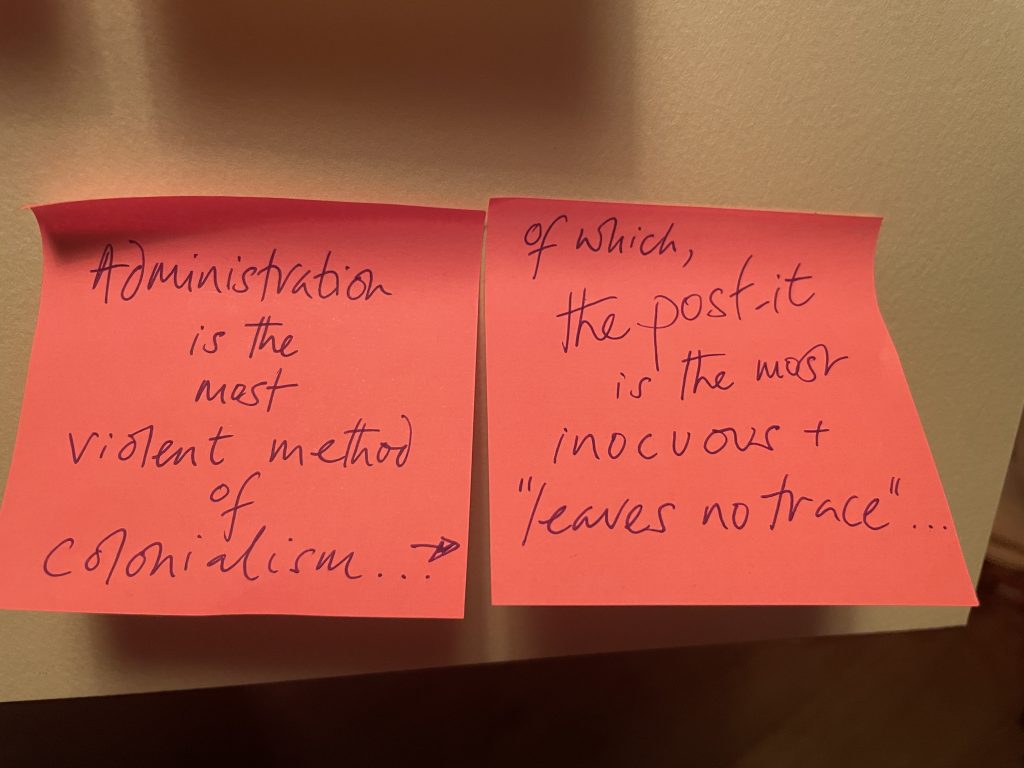 Administration
is the
most
violent method
of
colonialism...→
of which,
the post-it
is the most
inocuous +
"leaves no trace"...